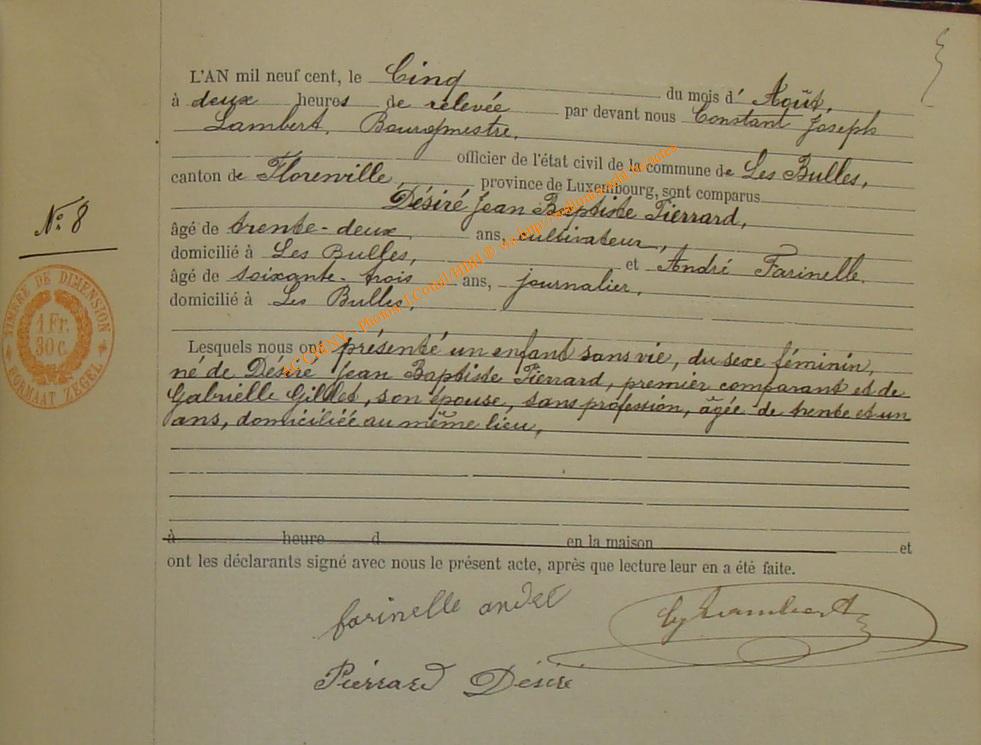 L'AN mil neuf cent, le Cinq du mois d' Août,
à deux heures de relevée par devant nous Constant Joseph
Lambert, Bourgmestre,
officier de l'état civil de la commune de Les Bulles,
canton de Florenville province de Luxembourg, sont comparus
Désiré Jean Baptiste Pierrard,
âgé de trente-deux ans, cultivateur,
domicilié à Les Bulles, et André Farinelle.
âgé de soixante-trois ans, journalier,
domicilié à Les Bulles,
N° 8
TIMBRE DE DIMENSION
1 Fr.
30 c.
FORMAAT ZEGEL
Lesquels nous ont présenté un enfant sans vie, du sexe féminin,
né de Désiré Jean Baptiste Pierrard, premier comparant et de
Gabrielle Gillet, son épouse, sans profession, âgée de trente et un
ans, domiciliée au même lieu,
à heure d en la maison et
ont les déclarants signé avec nous le présent acte, après que lecture leur en a été faite.
farinelle andré
Lambert
Pierrard Désiré